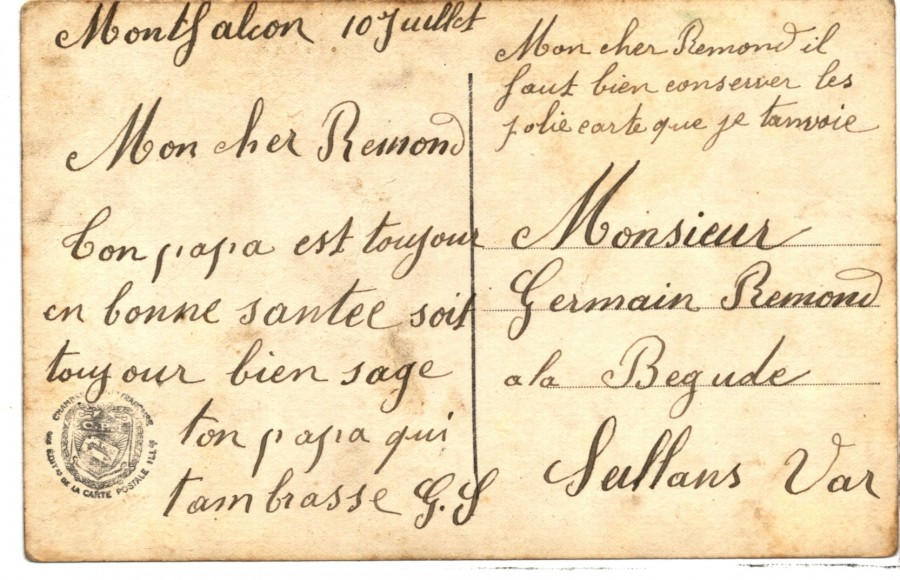 Montfalcon 10 Juillet
Mon cher Remond
ton papa est toujour
en bonne santée soit
toujour bien sage
ton papa qui
tambrasse G.S
Mon cher Remond il
faut bien conserver les
jolie carte que je tanvoie
Monsieur
Germain Remond
a la Begude
Seillans Var
DE LA CARTE POSTALE ILL